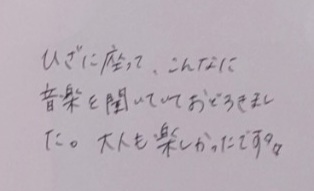 ひざに座って、こんなに
音楽を聞いていておどろきまし
た。大人も楽しかったです。